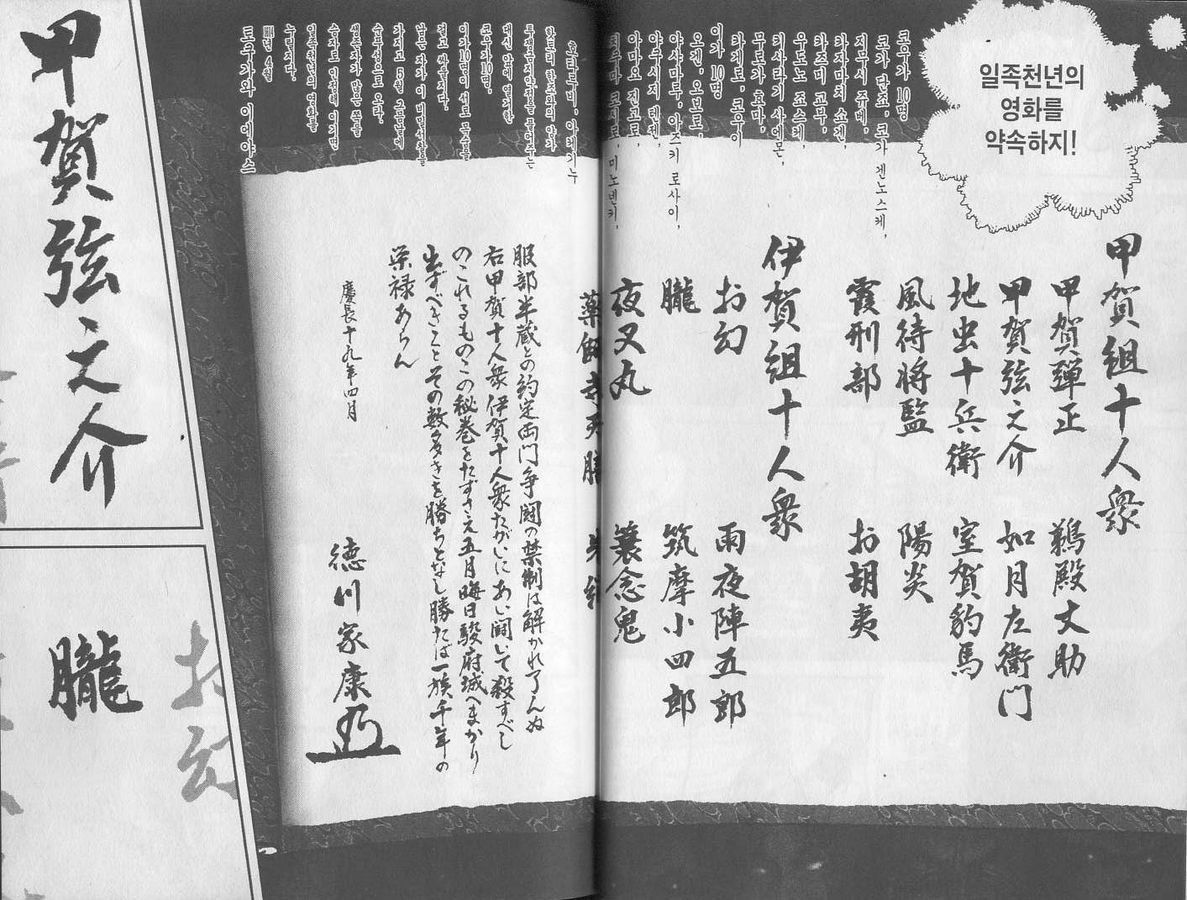 일족천년의
영화를
약속하지!
코우가 10명
코가 단죠, 코가 겐노스케,
지무시 쥬베,
카자마치 쇼겐,
카즈미 교부,
우도노 죠스케,
키사라기 사에몬,
무로가 효마,
카게로, 코우이
이가 10명
오겐, 오보로,
야샤마루, 아즈키 로사이,
야쿠시지 텐젠,
아마요 진고로,
치쿠마 코시로, 미노넨키,
호타루비, 아케기누
핫토리 한조와의 약정
투쟁금지약정을 풀어주는
대신 안에 열거한
코우가10명,
이가10명이 서로 목숨을
걸고 싸울지다.
남은 자가 이 비밀서찰을
가지고 5월 그믐날에
슨푸성으로 오라.
생존자가 많은 쪽을
승자로 인정해 이기면
일족천년의 영화를
누릴지다.
년 4월
토쿠가와 이에야스
甲賀組十人衆
甲賀弾正 鵜殿丈助
甲賀弦之介 如月左衛門
地虫十兵衛 室賀豹馬
風待将監 陽炎
霞刑部 お胡夷
伊賀組十人衆
お幻 雨夜陣五郎
朧 筑摩小四郎
夜叉丸 蓑念鬼
薬師寺天膳
服部半蔵との約定両門争闘の禁制は解かれ了んぬ
右甲賀十人衆伊賀十人衆たがいにあい闘いて殺すべし
のこれるものこの秘巻をたずさえ五月晦日駿府城へまかり
出ずべきことその数多きを勝ちとなし勝たば一族千年の
栄禄あらん
慶長十九年四月
徳川家康
甲賀弦之介
お幻
朧